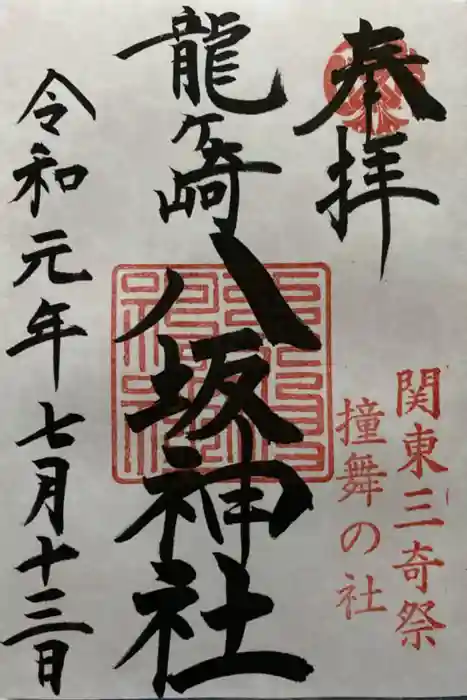 奉拝
関東三奇祭
撞舞の社
龍ヶ崎
八坂神社
令和元年七月十三日